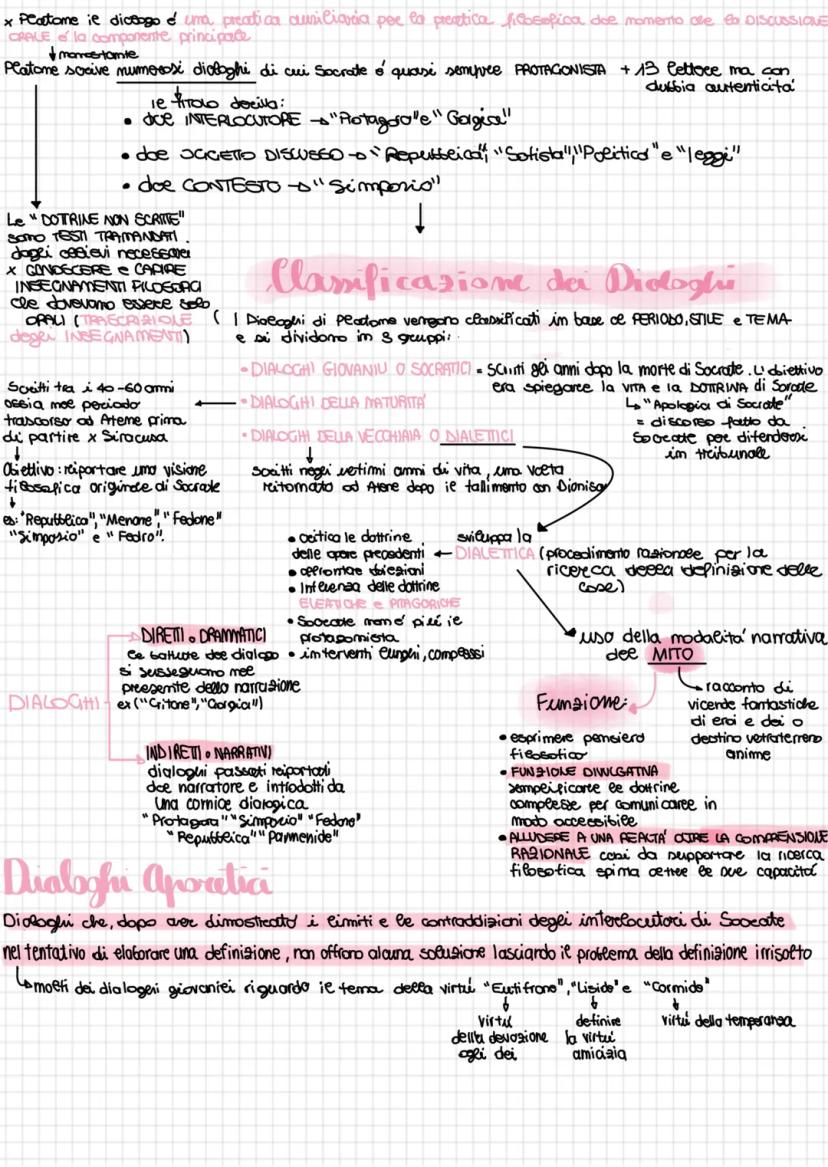 x Platone il dialogo é una pratica ausiliaria per la pratica filosofica dal momento che la DISCUSSIONE
ORALE é la componente principale
↓ nonostante
Platone scrive numerosi dialoghi di cui Socrate é quasi sempre PROTAGONISTA + 13 lettere ma con
dubbia autenticità
il TITOLO deriva:
• dal INTERLOCUTORE → "Protagora" e "Gorgia"
• dal SOGGETTO DISCUSSO → "Repubblica", "Sofista", "Politico" e "leggi"
• dal CONTESTO → "Simposio"
Le "DOTTRINE NON SCRITTE"
sono TESTI TRAMANDATI
dagli allievi necessari
x CONOSCERE e CAPIRE
INSEGNAMENTI FILOSOFICI
che dovevano essere solo
ORALI (TRASCRIZIONE
degli INSEGNAMENTI)
Classificazione dei Dialoghi
( I Dialoghi di Platone vengono classificati in base al PERIODO, STILE e TEMA
e si dividono in 3 gruppi:
• DIALOGHI GIOVANILI O SOCRATICI = scritti gli anni dopo la morte di Socrate. L'obiettivo
era spiegare la VITA e la DOTTRINA di Socrate
↳ "Apologia di Socrate"
= discorso fatto da
Socrate per difendersi
in tribunale
• DIALOGHI DELLA MATURITÀ
Scritti tra i 40-60 anni
ossia nel periodo
trascorso ad Atene prima
di partire x Siracusa
↓
Obiettivo: riportare una visione
filosofica originale di Socrate
↓
es: "Repubblica", "Menone", "Fedone"
"Simposio" e "Fedro".
• DIALOGHI DELLA VECCHIAIA O DIALETTICI
scritti negli ultimi anni di vita, una volta
ritornato ad Atene dopo il fallimento con Dionisio
sviluppa la
DIALETTICA (procedimento razionale per la
ricerca della definizione delle
cose)
• critica le dottrine
delle opere precedenti
• affrontare obiezioni
• Influenza delle dottrine
ELEATICHE e PITAGORICHE
• Socrate non é più il
protagonista
• interventi lunghi, complessi
uso della modalità narrativa
del MITO
→ racconto di
vicende fantastiche
di eroi e dei o
destino ultraterreno
anime
Funzione:
• esprimere pensiero
filosofico
• FUNZIONE DIVULGATIVA
semplificare le dottrine
complesse per comunicare in
modo accessibile
• ALLUDERE A UNA REALTÀ OLTRE LA COMPRENSIONE
RAZIONALE così da supportare la ricerca
filosofica spinta oltre le sue capacità
DIALOGHI
DIRETTI o DRAMMATICI
le battute del dialogo
si susseguono nel
presente della narrazione
es ("Critone", "Gorgia")
INDIRETTI o NARRATIVI
dialoghi passati riportati
dal narratore e introdotti da
una cornice dialogica
"Protagora" "Simposio" "Fedone"
"Repubblica" "Parmenide"
Dialoghi Aporetici
Dialoghi che, dopo aver dimostrato i limiti e le contraddizioni degli interlocutori di Socrate
nel tentativo di elaborare una definizione, non offrono alcuna soluzione lasciando il problema della definizione irrisolto
↳ molti dei dialoghi giovanili riguardo il tema della virtù "Eutifrone", "Liside" e "Carmide"
virtù
della devozione
agli dei
definire
la virtù
amicizia
virtù della temperanza